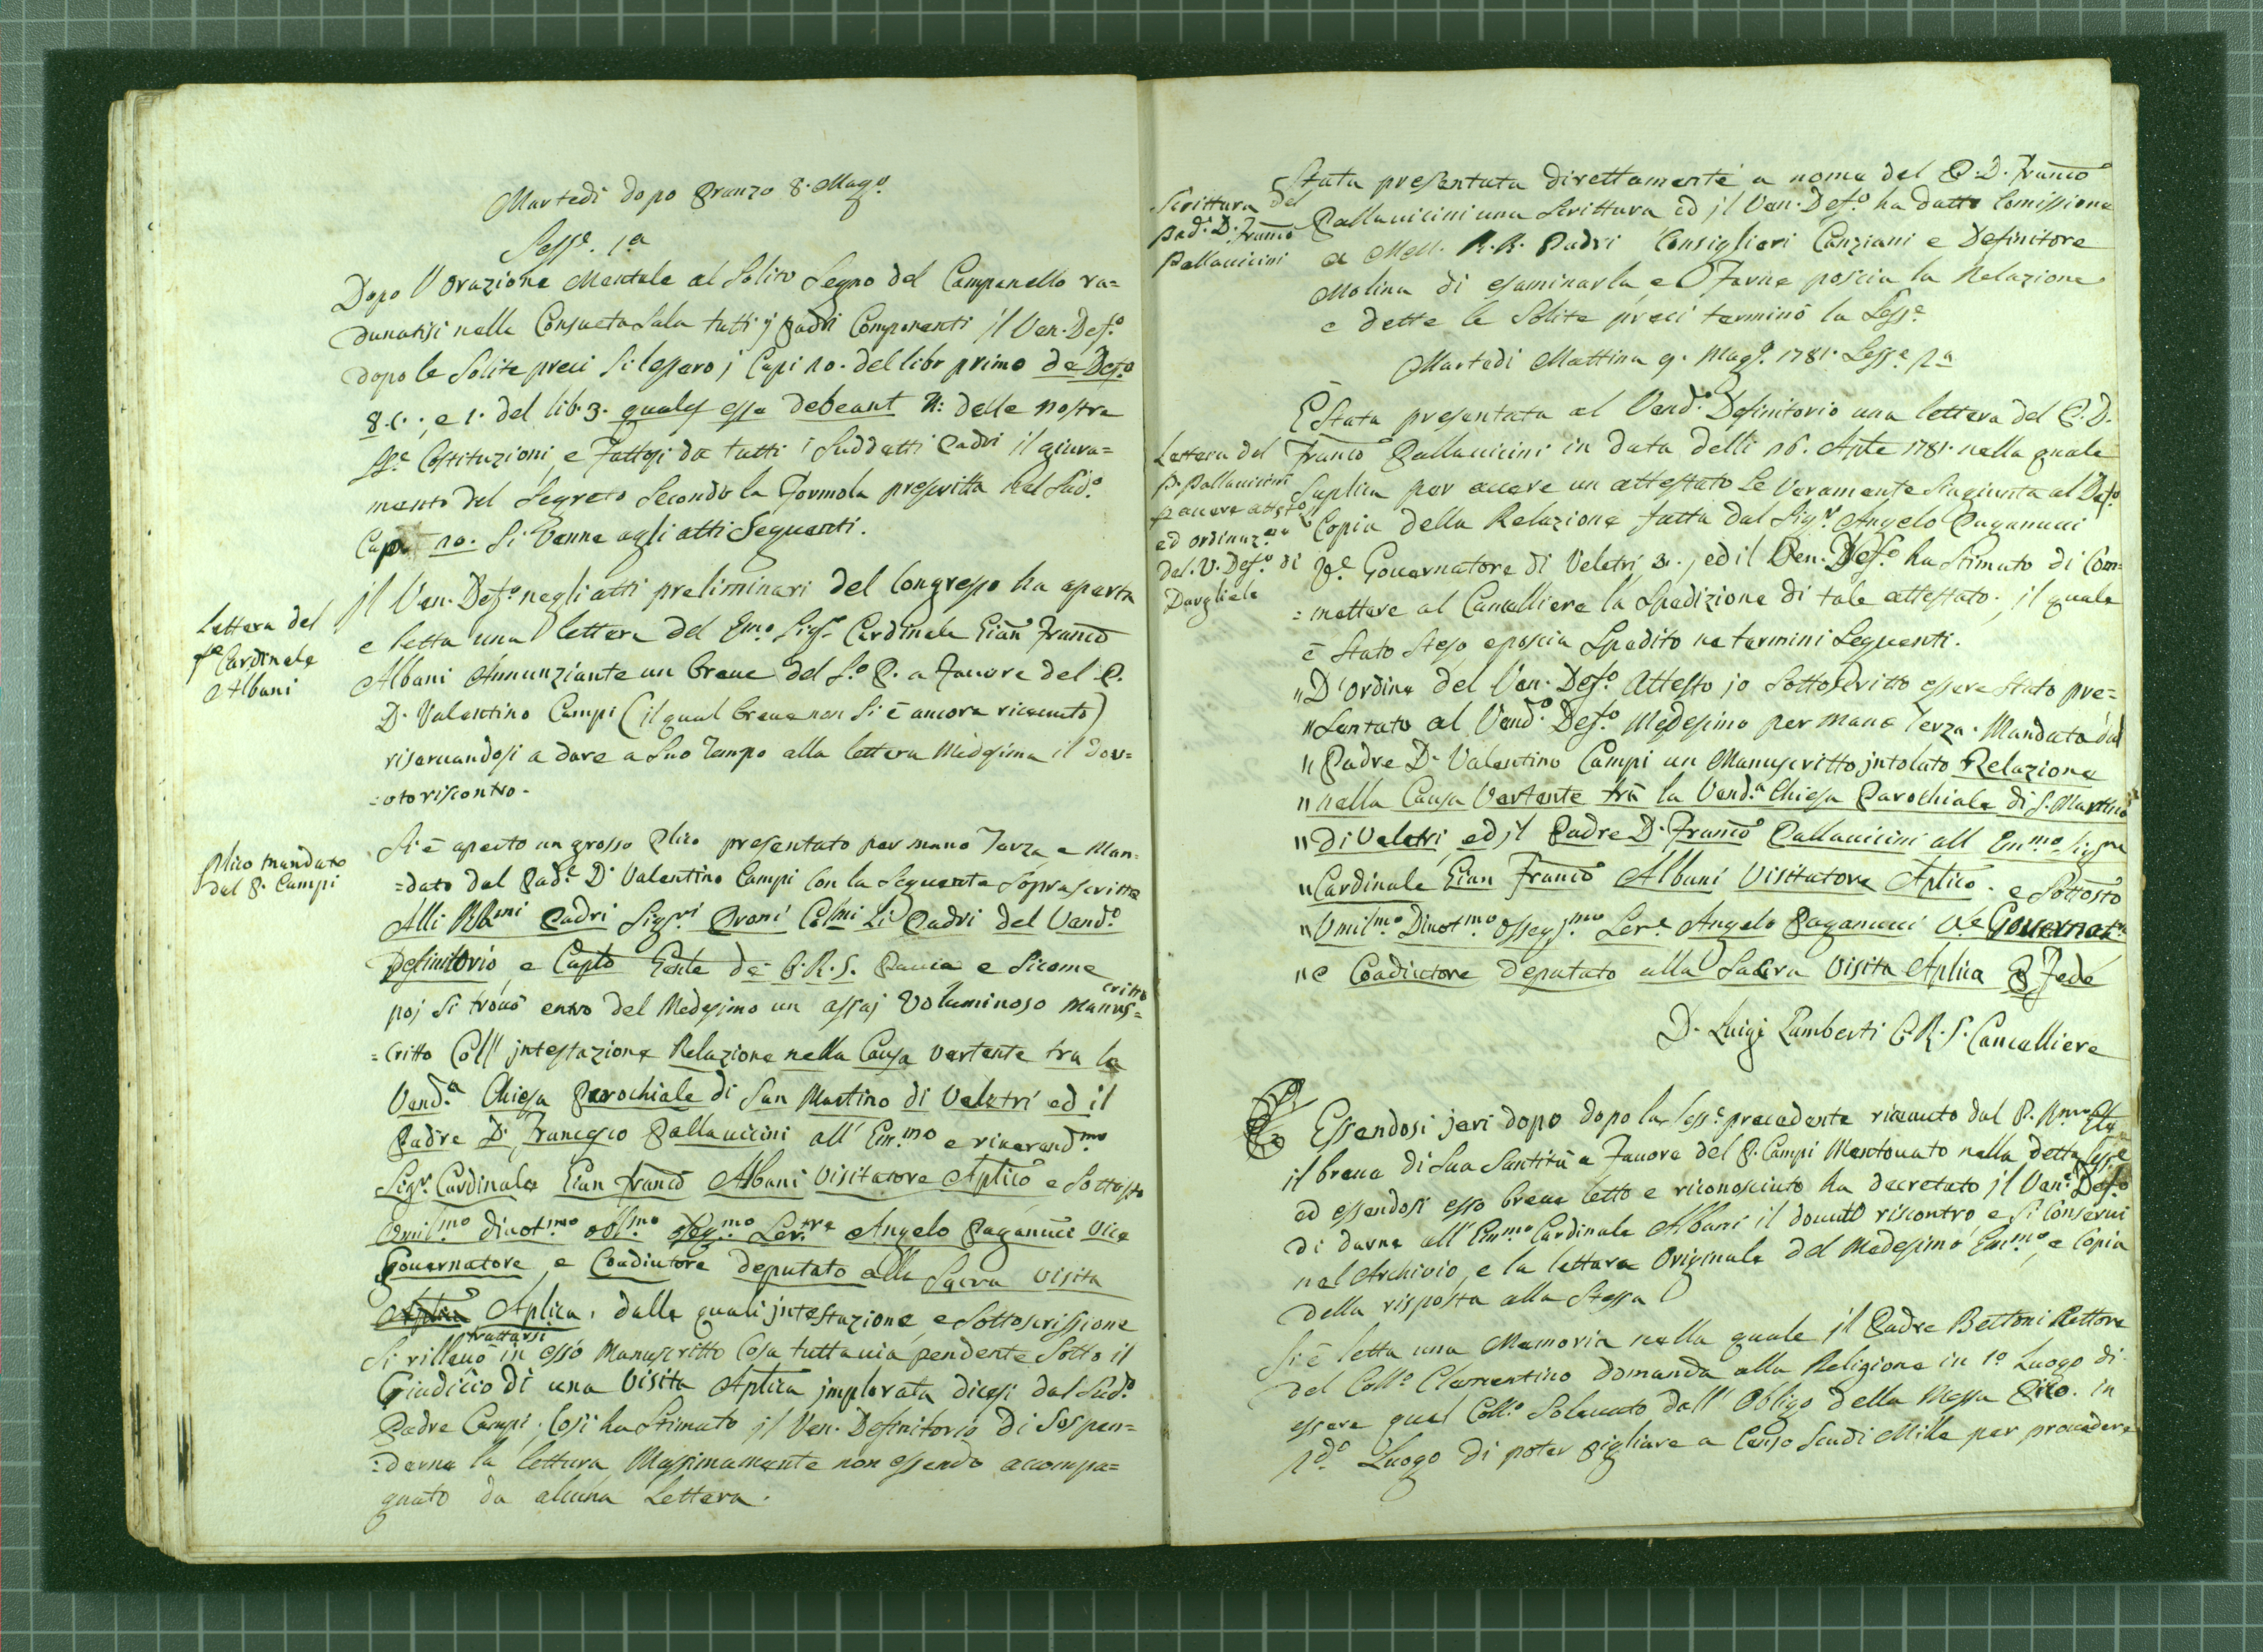 Martedi dopo Pranzo 8. Mag.º
Sess.e 1.a
Dopo l'orazione Mentale al Solito Segno del Campanello ra=
dunatisi nella Consueta Sala tutti j Padri Componenti il Ven. Def.º
dopo le Solite preci si lessero j Capi 10. del libr primo de Def.º
8. c. ; e 1. del lib. 3. quales esse debeant delle nostre
Costituzioni, e fattosi da tutti i Suddetti Padri il giura=
mento del Segreto Secondo la Formola prescritta nel Sud.º
Capo 10. Si venne agli atti Seguenti.
Lettera del
Cardinale
Albani
jl Ven. Def.º negli atti preliminari del Congresso ha aperta
e letta una lettera del Emo. Sig.r Cardinale Gian Franco
Albani Annunziante un breve del S.º P. a favore del P.
D. Valentino Campi (il qual breve non si è ancora ricevuto)
riservandosi a dare a suo tempo alla lettera Medesima il dov=
=uto riscontro.
Plico mandato
dal P. Campi
Si è aperto un grosso Plico presentato per mano Terza e Man=
=dato dal Pad.e D. Valentino Campi con la Seguente Soprascritta
Alli RR.mi Padri Sig.ri Proni Col.mi Li Padri del Vend.º
Definitorio, e Caplo Gnle de C. R. S. Pavia e Sicome
poj si trovò entro del Medesimo un assaj Voluminoso manus=
critto
=critto Coll' jntestazione Relazione nella Causa vertente tra la
Vend.a Chiesa Parochiale di San Martino di Veletri ed il
Padre D. Francesco Pallavicini all' Em.mo e riverend.mo
Sig.r Cardinale Gian Franco Albani Visitatore Aplico e Sottosto
Umil.mo divot.mo obl.mo Ser.re Angelo Paganucci Vice
Governatore, e Coadiutore deputato alla Sacra Visita
Aplica Aplica, dalle quali jntestazione, e Sottoscrissione
trattarsi
Si rillevò in esso Manuscritto Cosa tuttavia pendente Sotto il
Giudicio di una Visita Aplica jmplorata dicesi dal Sud.º
Padre Campi. Così ha Stimato jl Ven. Definitorio di Sospen=
=derne la lettura Massimamente non essendo accompa=
gnato da alcuna Lettera.
Scrittura del
Pad. D. Franco
Pallavicini
È Stata presentata direttamente a nome del P. D. Franco
Pallavicini una Scrittura ed jl Ven. Def.º ha datto Comissione
a Molt. R. R. Padri Consiglieri Canziani e Definitore
Molina di esaminarla e Farne poscia la Relazione
e dette le Solite preci terminò la Sess.e
Martedi Mattina 9. Mag.º 1781. Sess.e 2.a
Lettera del
P. Pallavicini
ed ordinaz.e
del V. Def.º di
Dargliele
È Stata presentata al Vend.º Definitorio una lettera del P. D.
Franco Pallavicini in data delli 16. Aple 1781. nella quale
Suplica per avere un attestato Se veramente sia giunta al Def.º
Copia della Relazione fatta dal Sig.r Angelo Paganucci
V.e Governatore di Veletri, ed il Ven. Def.º ha Stimato di Com=
=mettere al Cancelliere la Spedizione di tale attestato; jl quale
è Stato Steso e poscia Spedito ne termini Seguenti.
" D'ordine del Ven. Def.º Attesto jo Sottoscritto essere Stato pre=
" Sentato al Vend.º Def.º Medesimo per mano Terza. Mandato dal
" Padre D. Valentino Campi un Manuscritto jntolato Relazione
" nella Causa Vertente trà la Vend.a Chiesa Parochiale di S. Martino
" di Veletri ed jl Padre D. Franco Pallavicini all Em.mo Sig.re
" Cardinale Gian Franco Albani Visitatore Aplico. e Sottosto
" Umil.mo Divot.mo Osseq.mo Ser.e Angelo Paganucci V.e Governat.e
" e Coadiutore deputato alla Sacra Visita Aplica P Fede
D. Luigi Lamberti C. R. S. Cancelliere
Essendosi jeri dopo dopo la Sess.e precedente ricevuto dal P. R.mo
il breve di Sua Santità a Favore del P. Campi Mentovato nella detta Sess.e
ed essendosi esso breve letto e riconosciuto ha decretato jl Ven.e Def.º
di darne all' Em.mo Cardinale Albani il dovuto riscontro e si Conservi
nel Archivio, e la lettera Originale del Medesimo Em.mo, e Copia
della risposta alla Stessa
Si è letta una Memoria nella quale jl Padre Bettoni Rettore
del Coll.º Clementino domanda alla Religione in 1.º Luogo di
essere quel Coll.º Solevato dall' Obligo della Messa in
2.dº Luogo di poter pigliare a Censo Scudi Mille per provedere